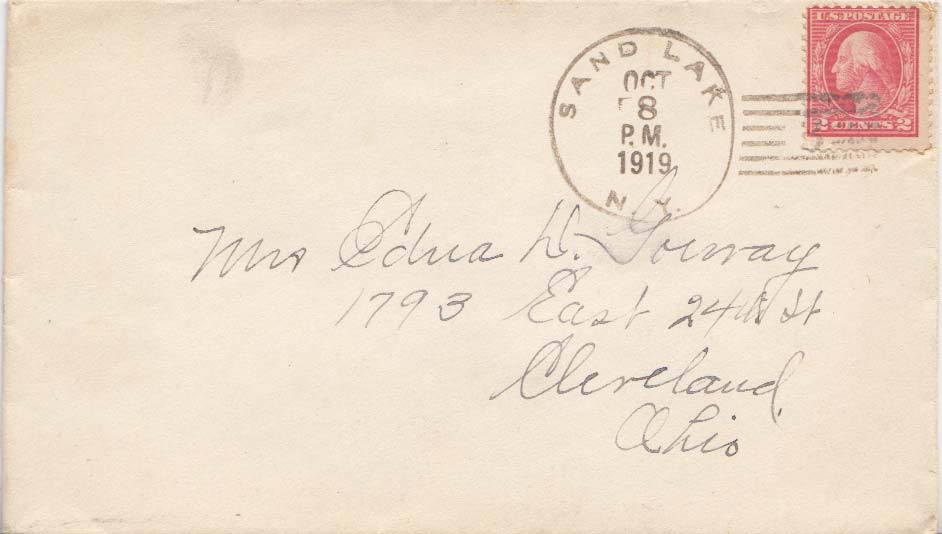 U.S. POSTAGE
2 CENTS 2
SAND LAKE
OCT
8
P.M.
1919
N.Y.
Mrs Edna D.
1793 East 24th St
Cleveland,
Ohio